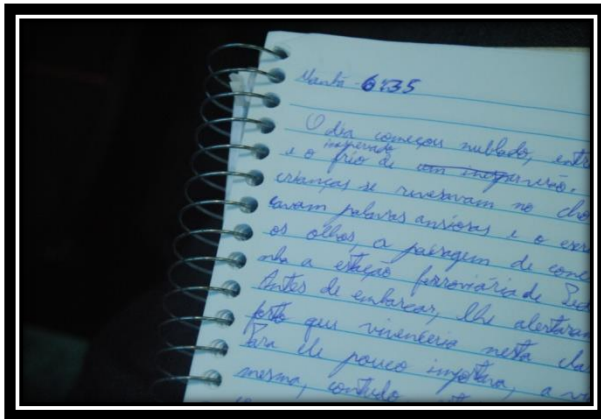 Manhã 6:35
O dia começou nublado, entre
inesperado
e o frio de um
crianças se revesavam no cho
cavam palavras ansiosas e o
os olhos, a paisagem de conc
nha a estação ferroviária de
Antes de embarcar, lhe alertaram
que vivenciaria nesta
Para ele pouco importava, a
mesma, contudo